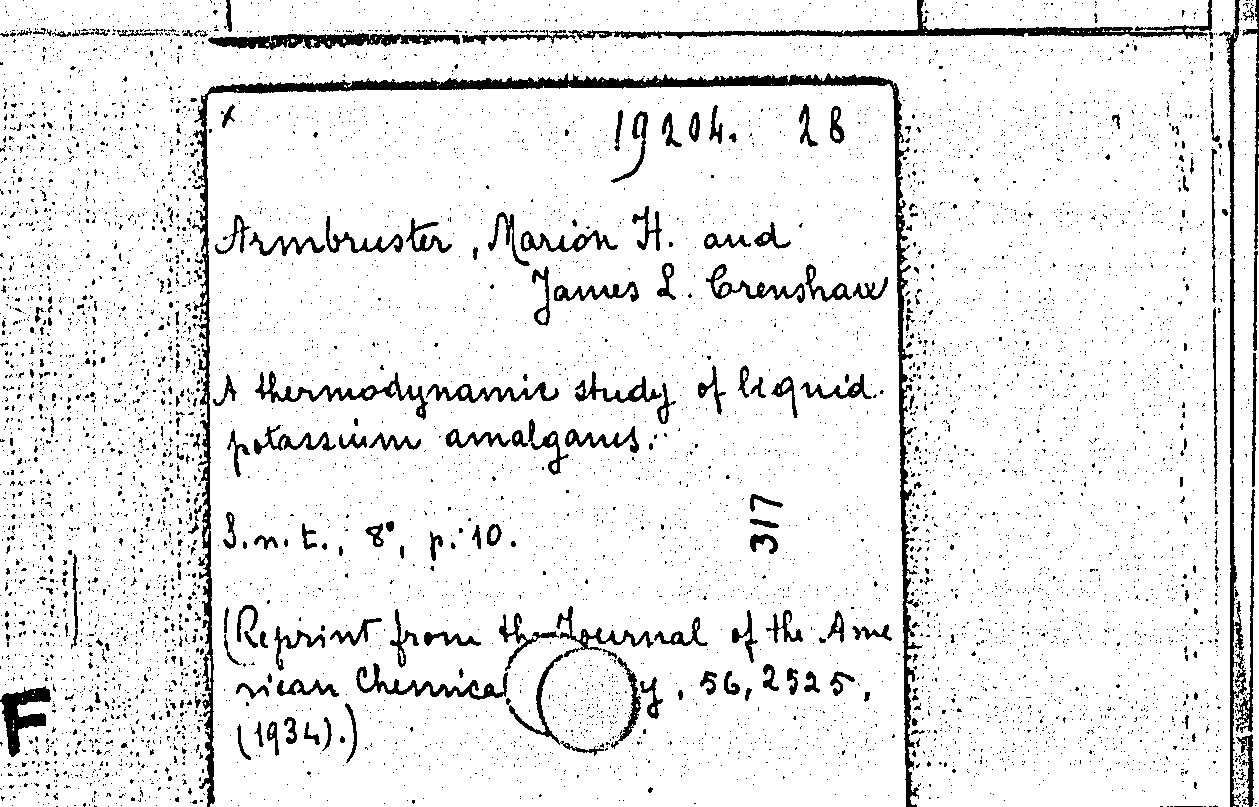 x
19204. 28
Armbruster, Marion H. and
James L. Crenshaw
A thermodynamic study of liquid
potassium amalgams.
S.n.t., 8°, p. 10.
317
(Reprint from the Journal of the Ame
rican Chemica y, 56, 2525,
(1934).)
F